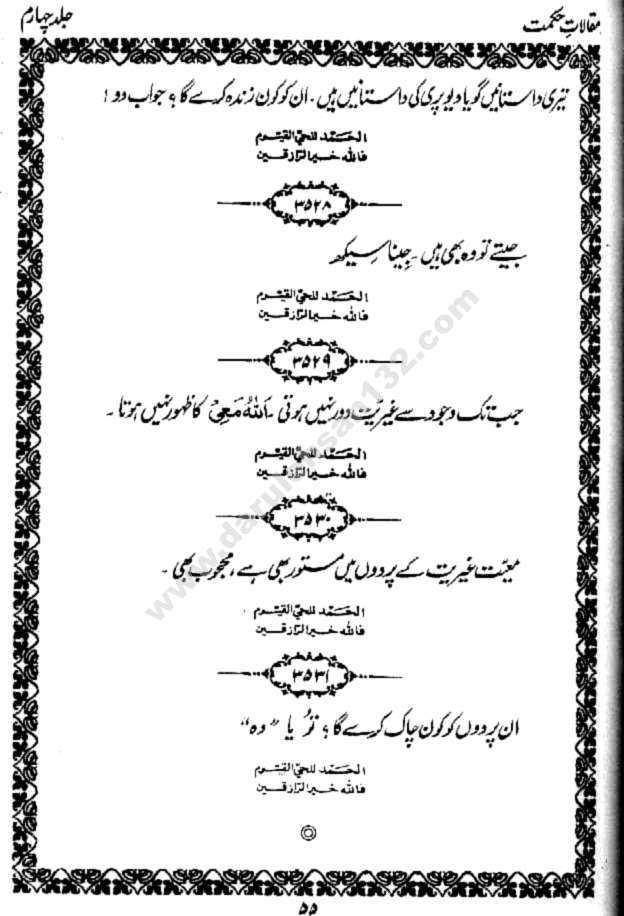 مقالاتِ حکمت
جلد چہارم
تیری داستانیں گویا دیو پری کی داستانیں ہیں۔ ان کو کون زندہ کرے گا؟ جواب دو!
الحَمد للحیّ القیّوم
فاللہ خیر الرّازقین
۳۵۲۸
جیتے تو وہ بھی ہیں۔ جِینا سیکھ
الحَمد للحیّ القیّوم
فاللہ خیر الرّازقین
۳۵۲۹
جب تک وجود سے غیریّت دور نہیں ہوتی۔ اَللهُ مَعِیْ کا ظہور نہیں ہوتا۔
الحَمد للحیّ القیّوم
فاللہ خیر الرّازقین
۳۵۳۰
معیّت غیریت کے پردوں میں مستور بھی ہے، محجوب بھی۔
الحَمد للحیّ القیّوم
فاللہ خیر الرّازقین
۳۵۳۱
ان پردوں کو کون چاک کرے گا؟ تُو یا "وہ"
الحَمد للحیّ القیّوم
فاللہ خیر الرّازقین
۵۵
www.darulehsan132.com